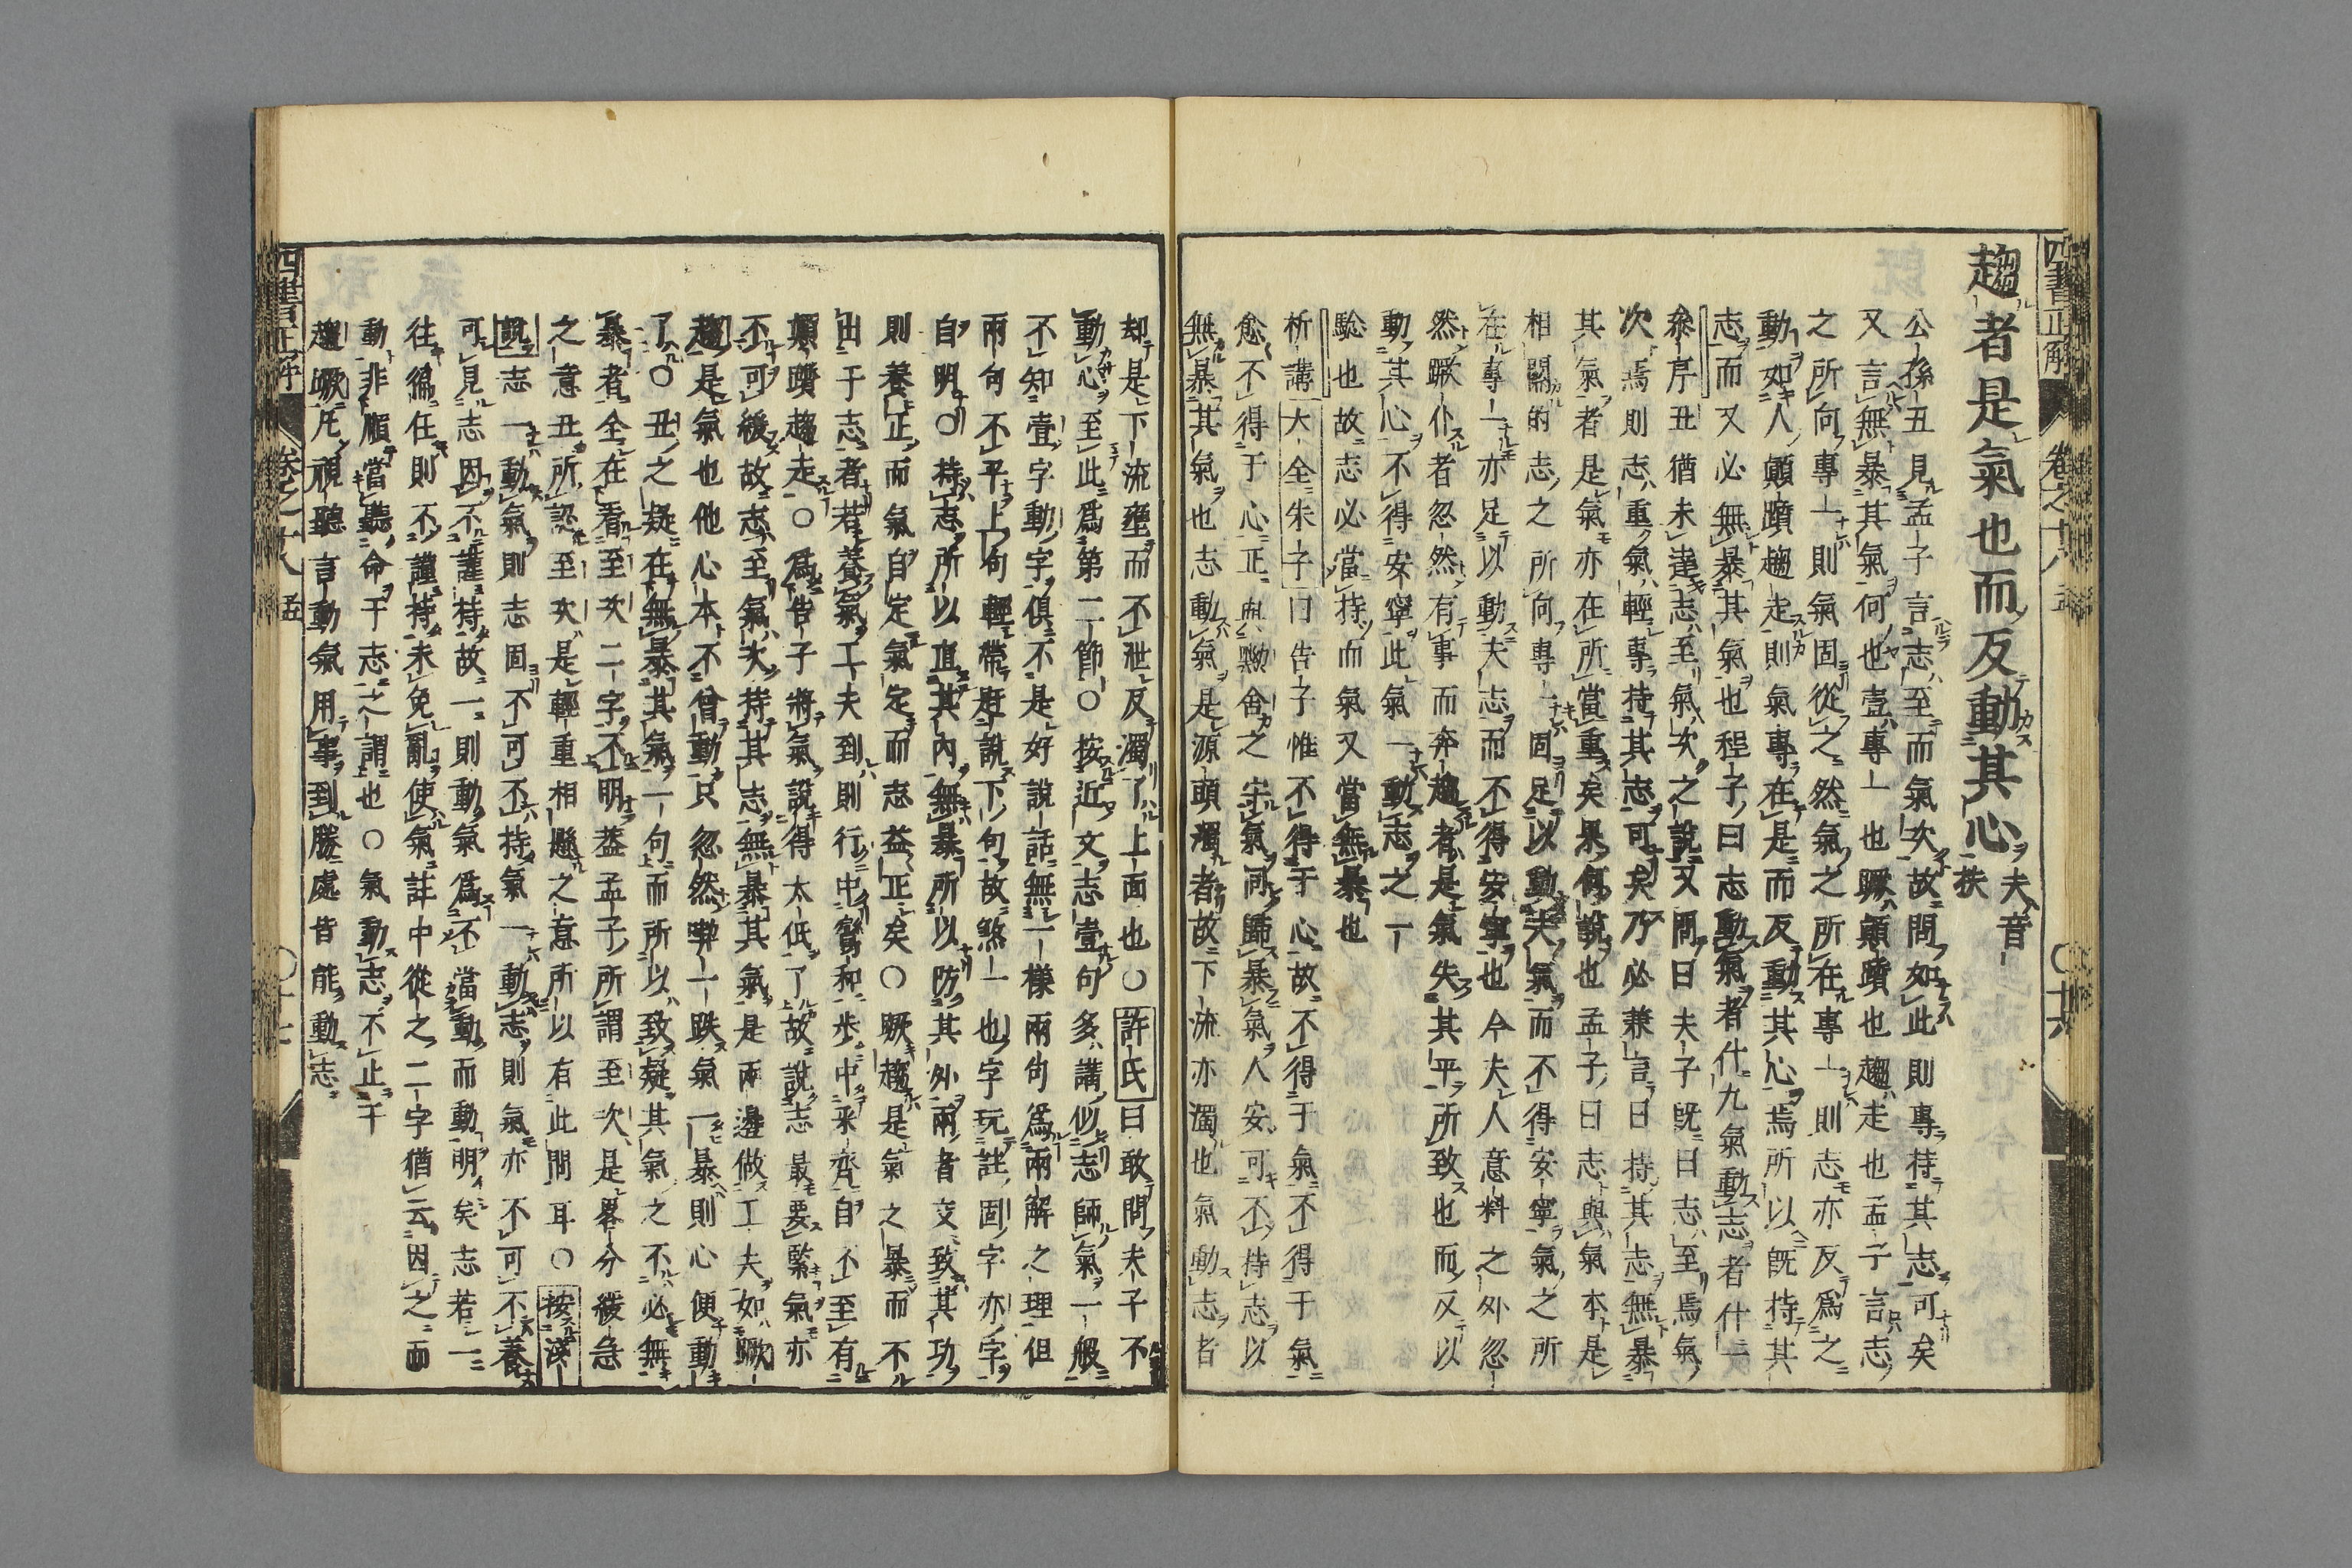 四書正解
卷之十八
孟
〇十六
趨者是氣也而反動其心夫音扶
公孫丑見孟子言志至而氣次故問如此則專持其志可矣
又言無暴其氣何也壹專一也蹶顛躓也趨走也孟子言志
之所向專一則氣固從之然氣之所在專一則志亦反爲之
動如人顛躓趨走則氣專在是而反動其心焉所以旣持其
志而又必無暴其氣也程子曰志動氣者什九氣動志者什一
叅序丑猶未達志至氣次之說又問曰夫子旣曰志至焉氣
次焉則志重氣輕專持其志可矣乃必兼言曰持其志無暴
其氣者是氣亦在所當重矣果何說也孟子曰志與氣本是
相關的志之所向專一固足以動夫氣而不得安寧氣之所
在專一亦足以動夫志而不得安寧也今夫人意料之外忽
然蹶仆者忽然有事而奔趨者是氣失其平所致也而反以
動其心不得安寧此氣一動志之一
騐也故志必當持而氣又當無暴也
析講大全朱子曰告子惟不得于心故不得于氣不得于氣
愈不得于心正與黝舍之守氣同歸暴氣人安可不持志以
無暴其氣也志動氣是源頭濁者故下流亦濁也氣動志者
却是下流壅而不泄反濁了上面也〇許氏曰敢問夫子不
動心至此爲第二節〇按近文志壹句多講似志師氣一般
不知壹字動字俱不是好說話無一樣兩句爲兩解之理但
兩句不平上句輕帶起說下句故煞一也字玩註固字亦字
自明〇持志所以直其內無暴所以防其外兩者交致其功
則養正而氣自定氣定而志益正矣〇蹶趨是氣之暴而不
出于志者若養氣工夫到則行中鸞和步中采齊自不至有
顛躓趨走〇爲告子將氣說得太低了故說志最要緊氣亦
不可緩故志至氣次持其志無暴其氣是兩邊做工夫如蹶
趨是氣也他心本不曾動只忽然喫一跌氣一暴則心便動
了〇丑之疑在無暴其氣一句而所以致疑其氣之不必無
暴者全在看至次二字不明葢孟子所謂至次是畧分緩急
之意丑所認至次是輕重相懸之意所以有此問耳〇按淺
說志一動氣則志固不可不持氣一動志則氣亦不可不養
可見志因不謹持故一則動氣爲不當動而動明矣志若一
往徧任則不謹持未免亂使氣註中從之二字猶云因之而
動非順當聽命于志之謂也〇氣動志不止千
趨蹶凡視聽言動氣用事到勝處皆能動志
四書正解
卷之十八
孟
〇十七